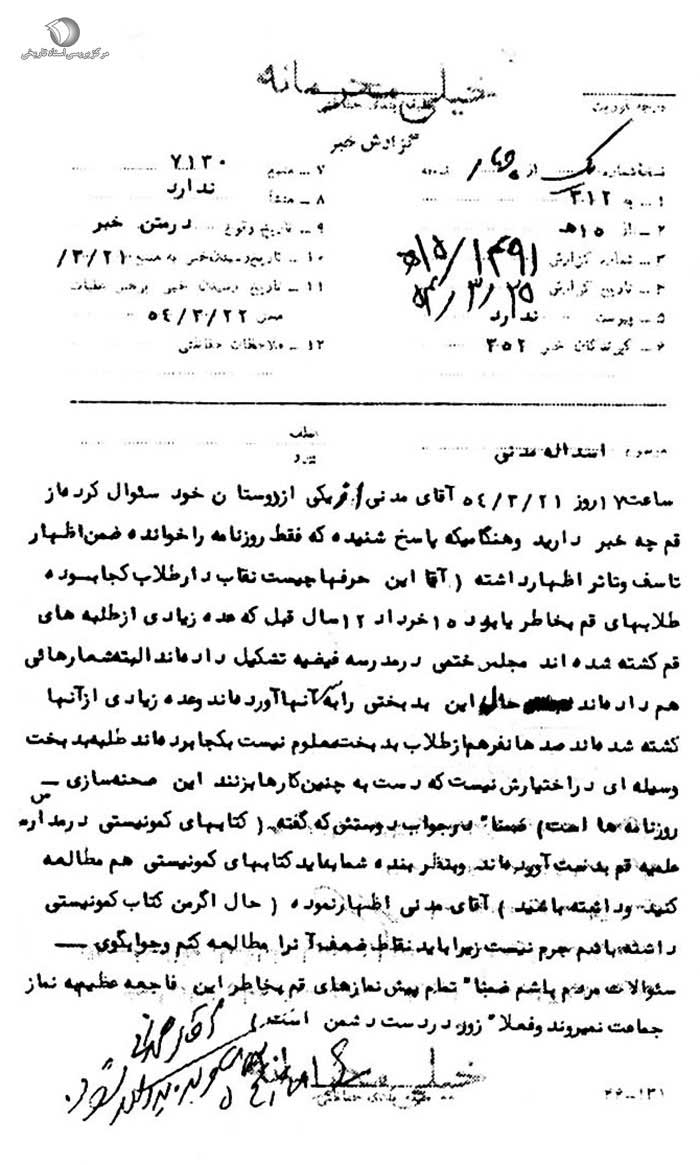 مرکز بررسی اسناد تاریخی
خیلی محرمانه
طبقه بندی حفاظتی
درجه فوریت
گزارش خبر
نسخه شماره یک از چهار نسخه
۱ – به ۳۱۲
۲ – از ۱۵ هـ
۳ – شماره گزارش ۱۴۹۱/ ۱۵هـ
۴ – تاریخ گزارش ۲۵/ ۳/ ۵۴
۵ – پیوست ندارد
۶ – گیرندگان خبر ۳۵۲
۷ – منبع ۷۱۳۰
۸ – منشأ ندارد
۹ – تاریخ وقوع درمتن خبر
۱۰ – تاریخ رسیدن خبر به منبع ۳/۲۱/
۱۱ – تاریخ رسیدن خبر برهبر عملیات
۵۴/۳/۲۲
۱۲ – ملاحظات حفاظتی
موضوع اسداله مدنی
عطف
پیرو
ساعت ۱۷ روز ۵۴/۳/۲۱ آقای مدنی از یکی از دوستان خود سئوال کرده از
قم چه خبر دارید وهنگامیکه پاسخ شنیده که فقط روزنامه را خوانده ضمن اظهار
تاسف وتاثر اظهار داشته ( آقا این حرفها چیست نقاب دار طلاب کجا بوده
طلابهای قم بخاطر یابود ۱۵ خرداد ۱۲ سال قبل که عده زیادی از طلبه های
قم کشته شده اند مجلس ختمی درمدرسه فیضیه تشکیل داده اند البته شعارهائی
هم داده اند حال این بدبختی را به آنها آورده اند وعده زیادی از آنها
کشته شده اند صدها نفرهم از طلاب بدبخت معلوم نیست بکجا برده اند طلبه بدبخت
وسیله ای در اختیارش نیست که دست به چنین کارها بزنند این صحنه سازی –
روزنامه ها است) ضمنا" در جواب دوستش که گفته ( کتابهای کمونیستی درمدارس
علمیه قم بدست آورده اند وبنظر بنده شما باید کتابهای کمونیستی هم مطالعه
کنید وداشته باشید ) آقای مدنی اظهار نموده ( حال اگر من کتاب کمونیستی
داشته باشم جرم نیست زیرا باید نقاط ضعف آنرا مطالعه کنم وجوابگوی —
سئوالات مردم باشم ضمنا" تمام پیش نمازهای قم بخاطر این فاجعه عظیم به نماز
جماعت نمیروند وفعلا" زور در دست دشمن است.)
خیلی محرمانه
طبقه بندی حفاظتی
۴۶–۱۳۱